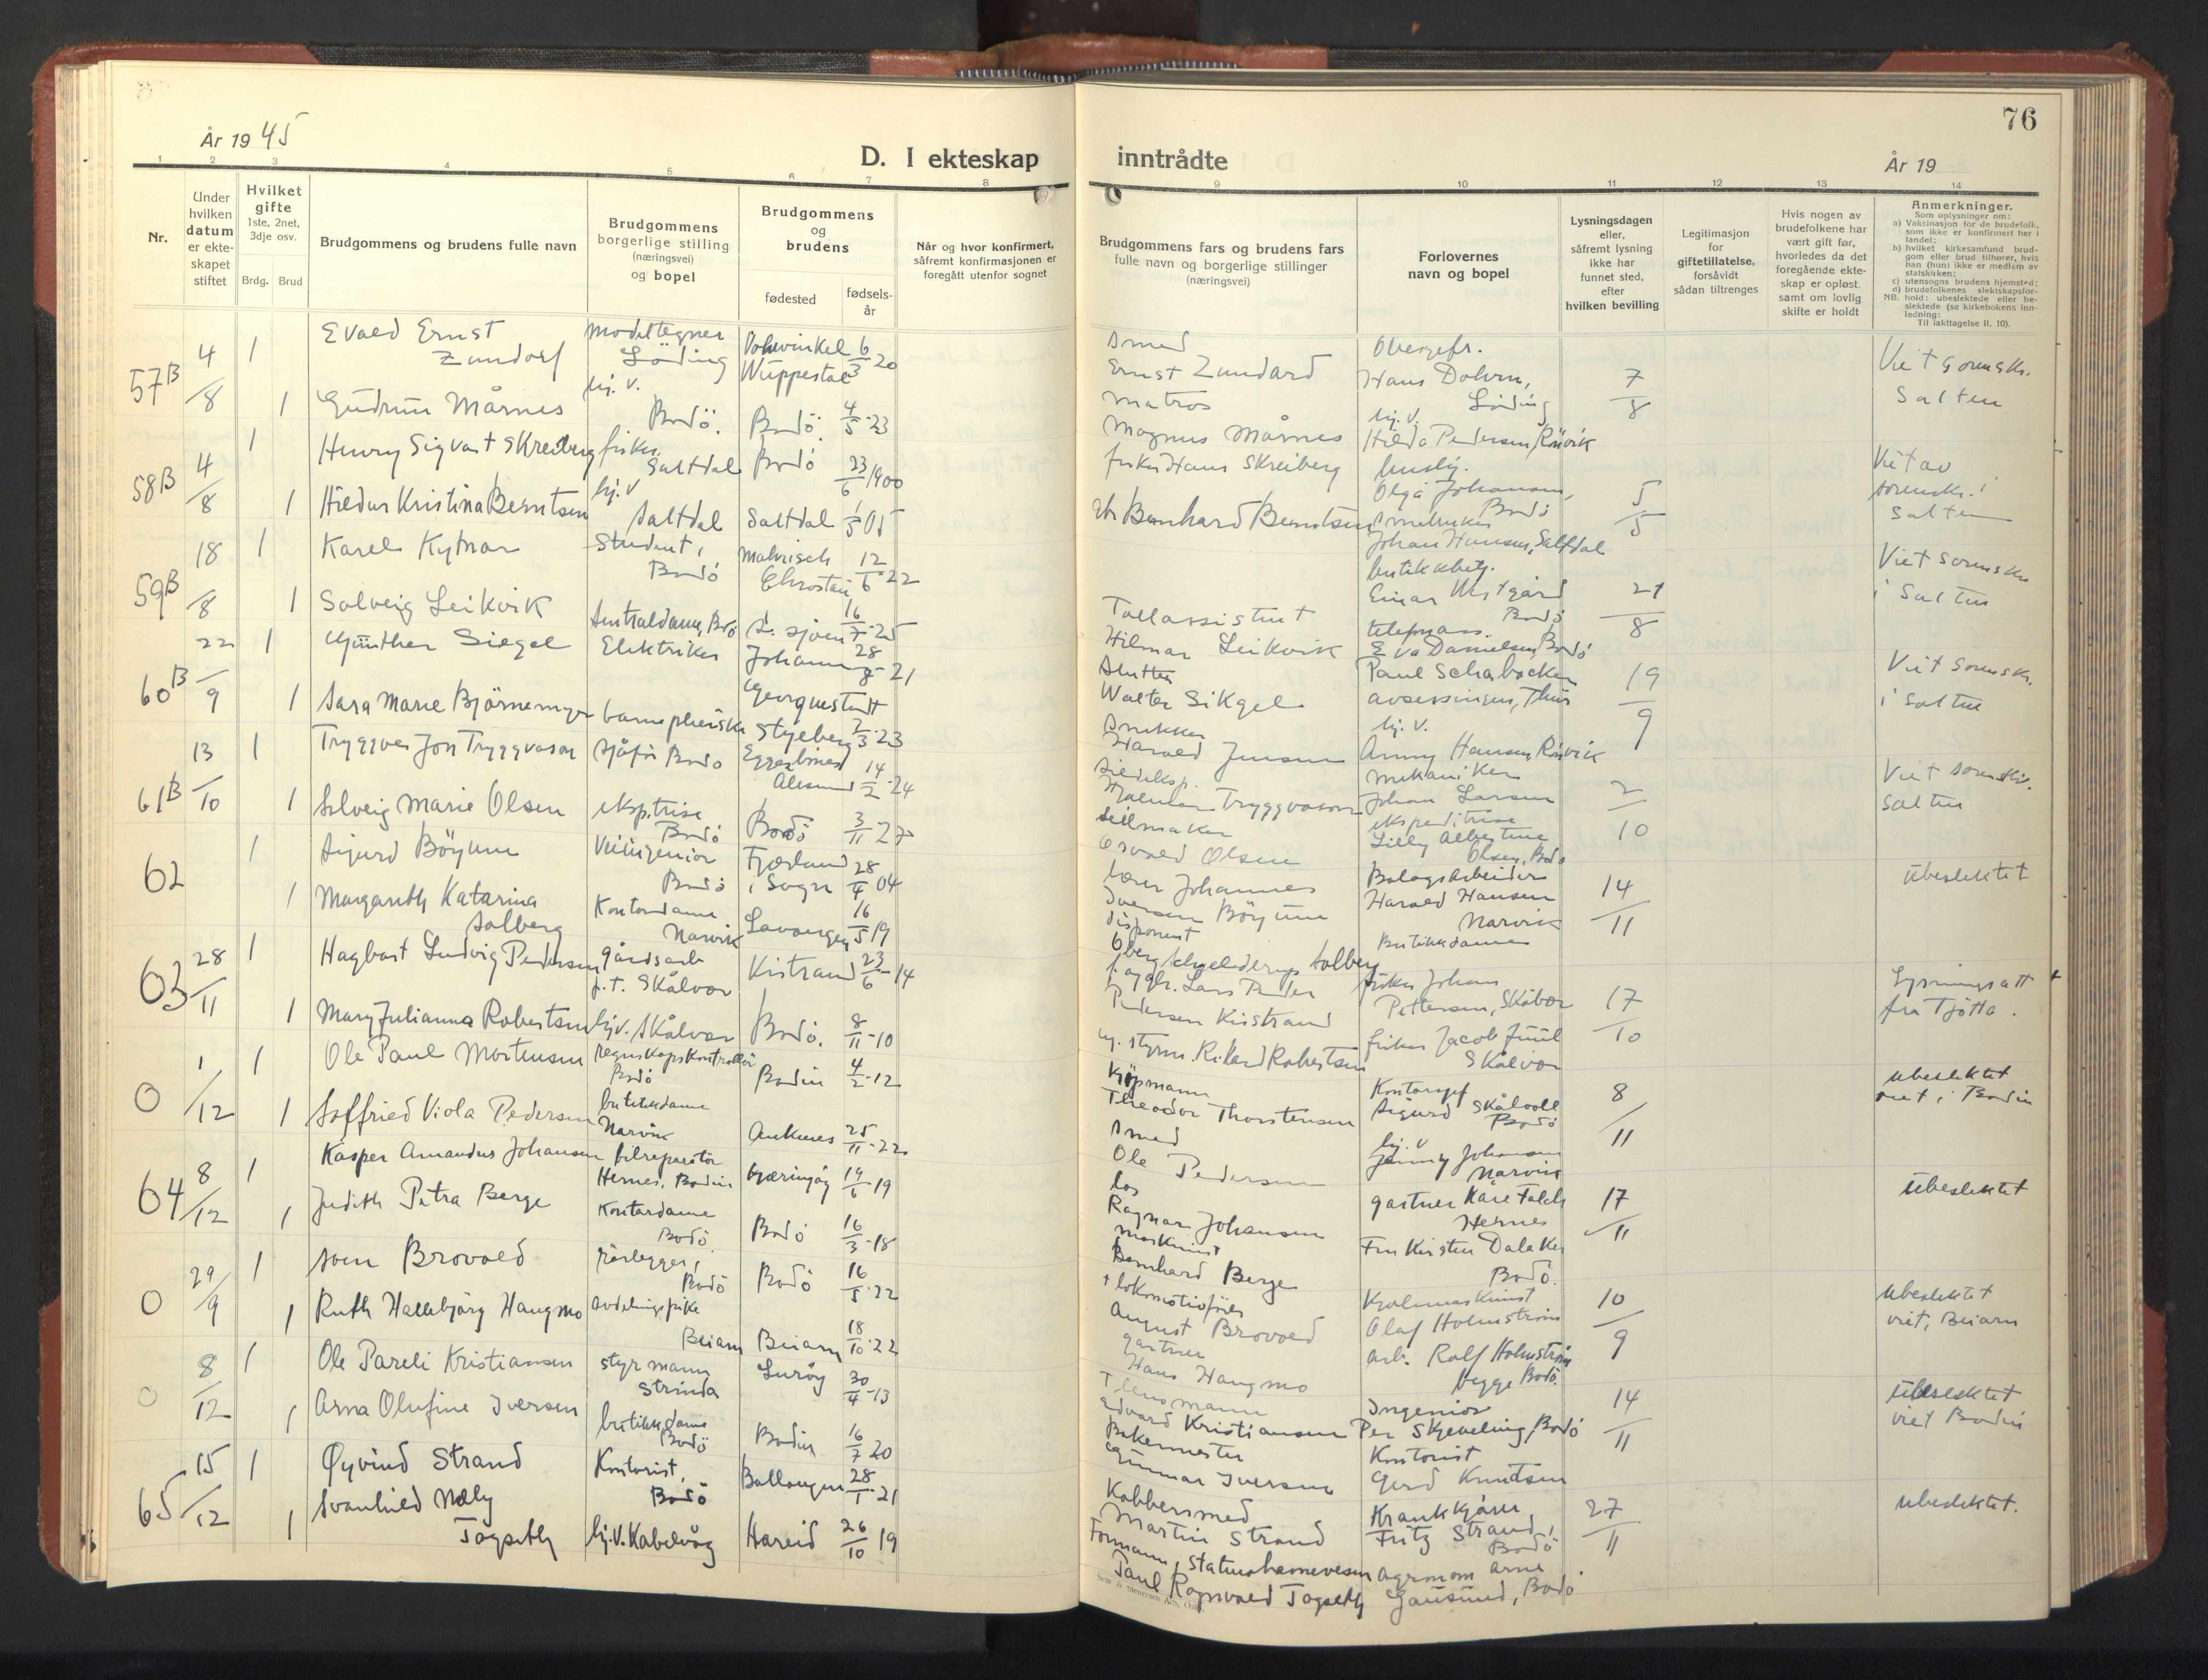 År 1945
D. I ekteskap
inntrådte
År 19
76
1 2 3 4 5 6 7 8 9 10 11 12 13 14
Nr.
Under hvilken datum er ekteskapet stiftet
Hvilket gifte
1ste, 2net, 3dje osv.
Brdg. Brud
Brudgommens og brudens fulle navn
Brudgommens borgerlige stilling (næringsvei) og bopel
Brudgommens og brudens
fødested
fødselsår
Når og hvor konfirmert, såfremt konfirmasjonen er foregått utenfor sognet
Brudgommens fars og brudens fars fulle navn og borgerlige stillinger (næringsvei)
Forlovernes navn og bopel
Lysningsdagen eller, såfremt lysning ikke har funnet sted, efter hvilken bevilling
Legitimasjon for giftetillatelse, forsåvidt sådan tiltrenges
Hvis nogen av brudefolkene har vært gift før, hvorledes da det foregående ekteskap er opløst, samt om lovlig skifte er holdt
Anmerkninger.
Som oplysninger om:
a) Vaksinasjon for de brudefolk, som ikke er konfirmert her i landet;
b) hvilket kirkesamfund brudgom eller brud tilhører, hvis han (hun) ikke er medlem av statskirken;
c) utensogns brudens hjemsted;
d) brudefolkenes slektskapsforhold: ubeslektede eller beslektede (se kirkebokens innledning:
NB.
Til iakttagelse II. 10).
57B 4/8 1 Evald Ernst Zundorf modeltegner Löding Vohwinkel Wuppertal 6/3 20 smed Ernst Zundard Obergefr. Hans Dohrn, Löding 7/8 Viet sorenskr. Salten
1 Gudrun Mårnes hj. v. Bodö. Bodö. 4/5-23 matros Magnus Mårnes hj. v. Hilda Pedersen, Rönvik
58B 4/8 1 Henry Sigvart Skreiberg fisker Saltdal Bodö 23/6 1900 fisker Hans Skreiberg huslij. Olga Johansen, Bodö 5/5 Viet av sorenskr. i Salten
1 Hildur Kristina Berntsen hj. v Saltdal Saltdal 1/5 05 Bernhard Berntsen Johan Hansen, Saltdal
59B 18/8 1 Karel Kytnar Student, Bodö Mahrisch Chrostau 12/6-22 butikkbetj. Einar Westgård Bodö 21/8 Viet sorenskr. i Salten
1 Solveig Leikvik Sentraldame, Bodö 16/7-25 Tollassistent Hilmar Leikvik telefonass. Eva Danielsen, Bodö
60B 22/9 1 Günther Siegel Elektriker Johann Georgenstadt 28 21 Walter Sikgel Paul Schabacker 19/9 Viet sorenskr. i Salten
1 Sara Marie Björnemyr barnepleierske 2/3-23 snekker Harald Jensen hj. v. Anny Hansen, Rönvik
61B 13/10 1 Tryggve Jon Tryggvason sjåför Bodö Ålesund 14/2-24 Hjalmar Tryggvason mekaniker Johan Larsen 2/10 Viet sorenskr. Salten
1 Solveig Marie Olsen eksp.trise Bodö Bodö 3/11 27 seilmaker Osvald Olsen ekspeditrise Lilly Albertine Olsen, Bodö
62 1 Sigurd Böyum Veiingeniör Bodö Fjærland i Sogn 28/4 04 lærer Johannes Iversen Böyum Harald Hansen Narvik 14/11 Ubeslektet
1 Margareth Katarina Solberg Kontordame Narvik Lavangen 16/5 19 disponent Solberg Butikkdame
63 28/11 1 Hagbart Ludvig Pedersen gårdsarb f. t. Skålvær Kistrand 23/6-14 Lars Peder Pedersen Kistrand fisker Johan Pettersen, Skålvær 17/10 Lysningsatt fra Tjötta.
1 Mary Julianna Robertsen hj. v. Skålvær Bodö. 8/11-10 styrm. Rikard Robertsen fisker Jacob Juul Skålvær
0 1/12 1 Ole Paul Mortensen regnskapskontrollör Bodö Bodin 4/2-12 Kjöpmann Theodor Thorstensen Kontorsjef Sigurd Skålvoll Bodö 8/11 ubeslektet viet i Bodin
1 Solfried Viola Pedersen butikkdame Narvik Ankenes 25/11-22 smed Ole Pedersen hj. v Jenny Johansen Narvik
64 8/12 1 Kasper Amandus Johansen bilreparatör Hernes, Bodin Kjerringöy 14/6 19 los Ragnar Johansen gartner Kåre Falch Hernes 17/11 Ubeslektet
1 Judith Petra Berge Kontordame Bodö. Bodö 16/3-18 maskinist Bernhard Berge Fru Kirsten Dalaker Bodö.
0 29/9 1 Sven Brovold rörlegger, Bodö Bodö 16/5-22 + lokomotivförer August Brovold Olaf Holmström 10/9 Ubeslektet viet, Beiarn
1 Ruth Hallbjörg Haugmo avdelingspike Beiarn Beiarn 18/10-22 gartner Hans Haugmo arb. Rolf Holmström begge Bodö.
0 8/12 1 Ole Pareli Kristiansen styrmann Strinda Luröy 30/4-13 + lensmann Edvard Kristiansen Ingeniör Per Skjevling, Bodö 14/11 Ubeslektet viet Bodin
1 Arna Olufine Iversen butikkdame Bodö Bodin 16/7 20 Bakermester Gunnar Iversen Kontorist Gerd Knudsen
65 15/12 1 Øyvind Strand Kontorist, Bodö Ballangen 28/1-21 Kobbersmed Martin Strand Krankkjörer Fritz Strand, Bodö 27/11 ubeslektet.
1 Svanhild Nely Togseth hj. v. Kabelvåg Hareid 26/10 19 Formann, statens havnevesen Paul Ragnvald Togseth agronom Arne Gausund, Bodö
Sem & Stenersen A/S, Oslo.